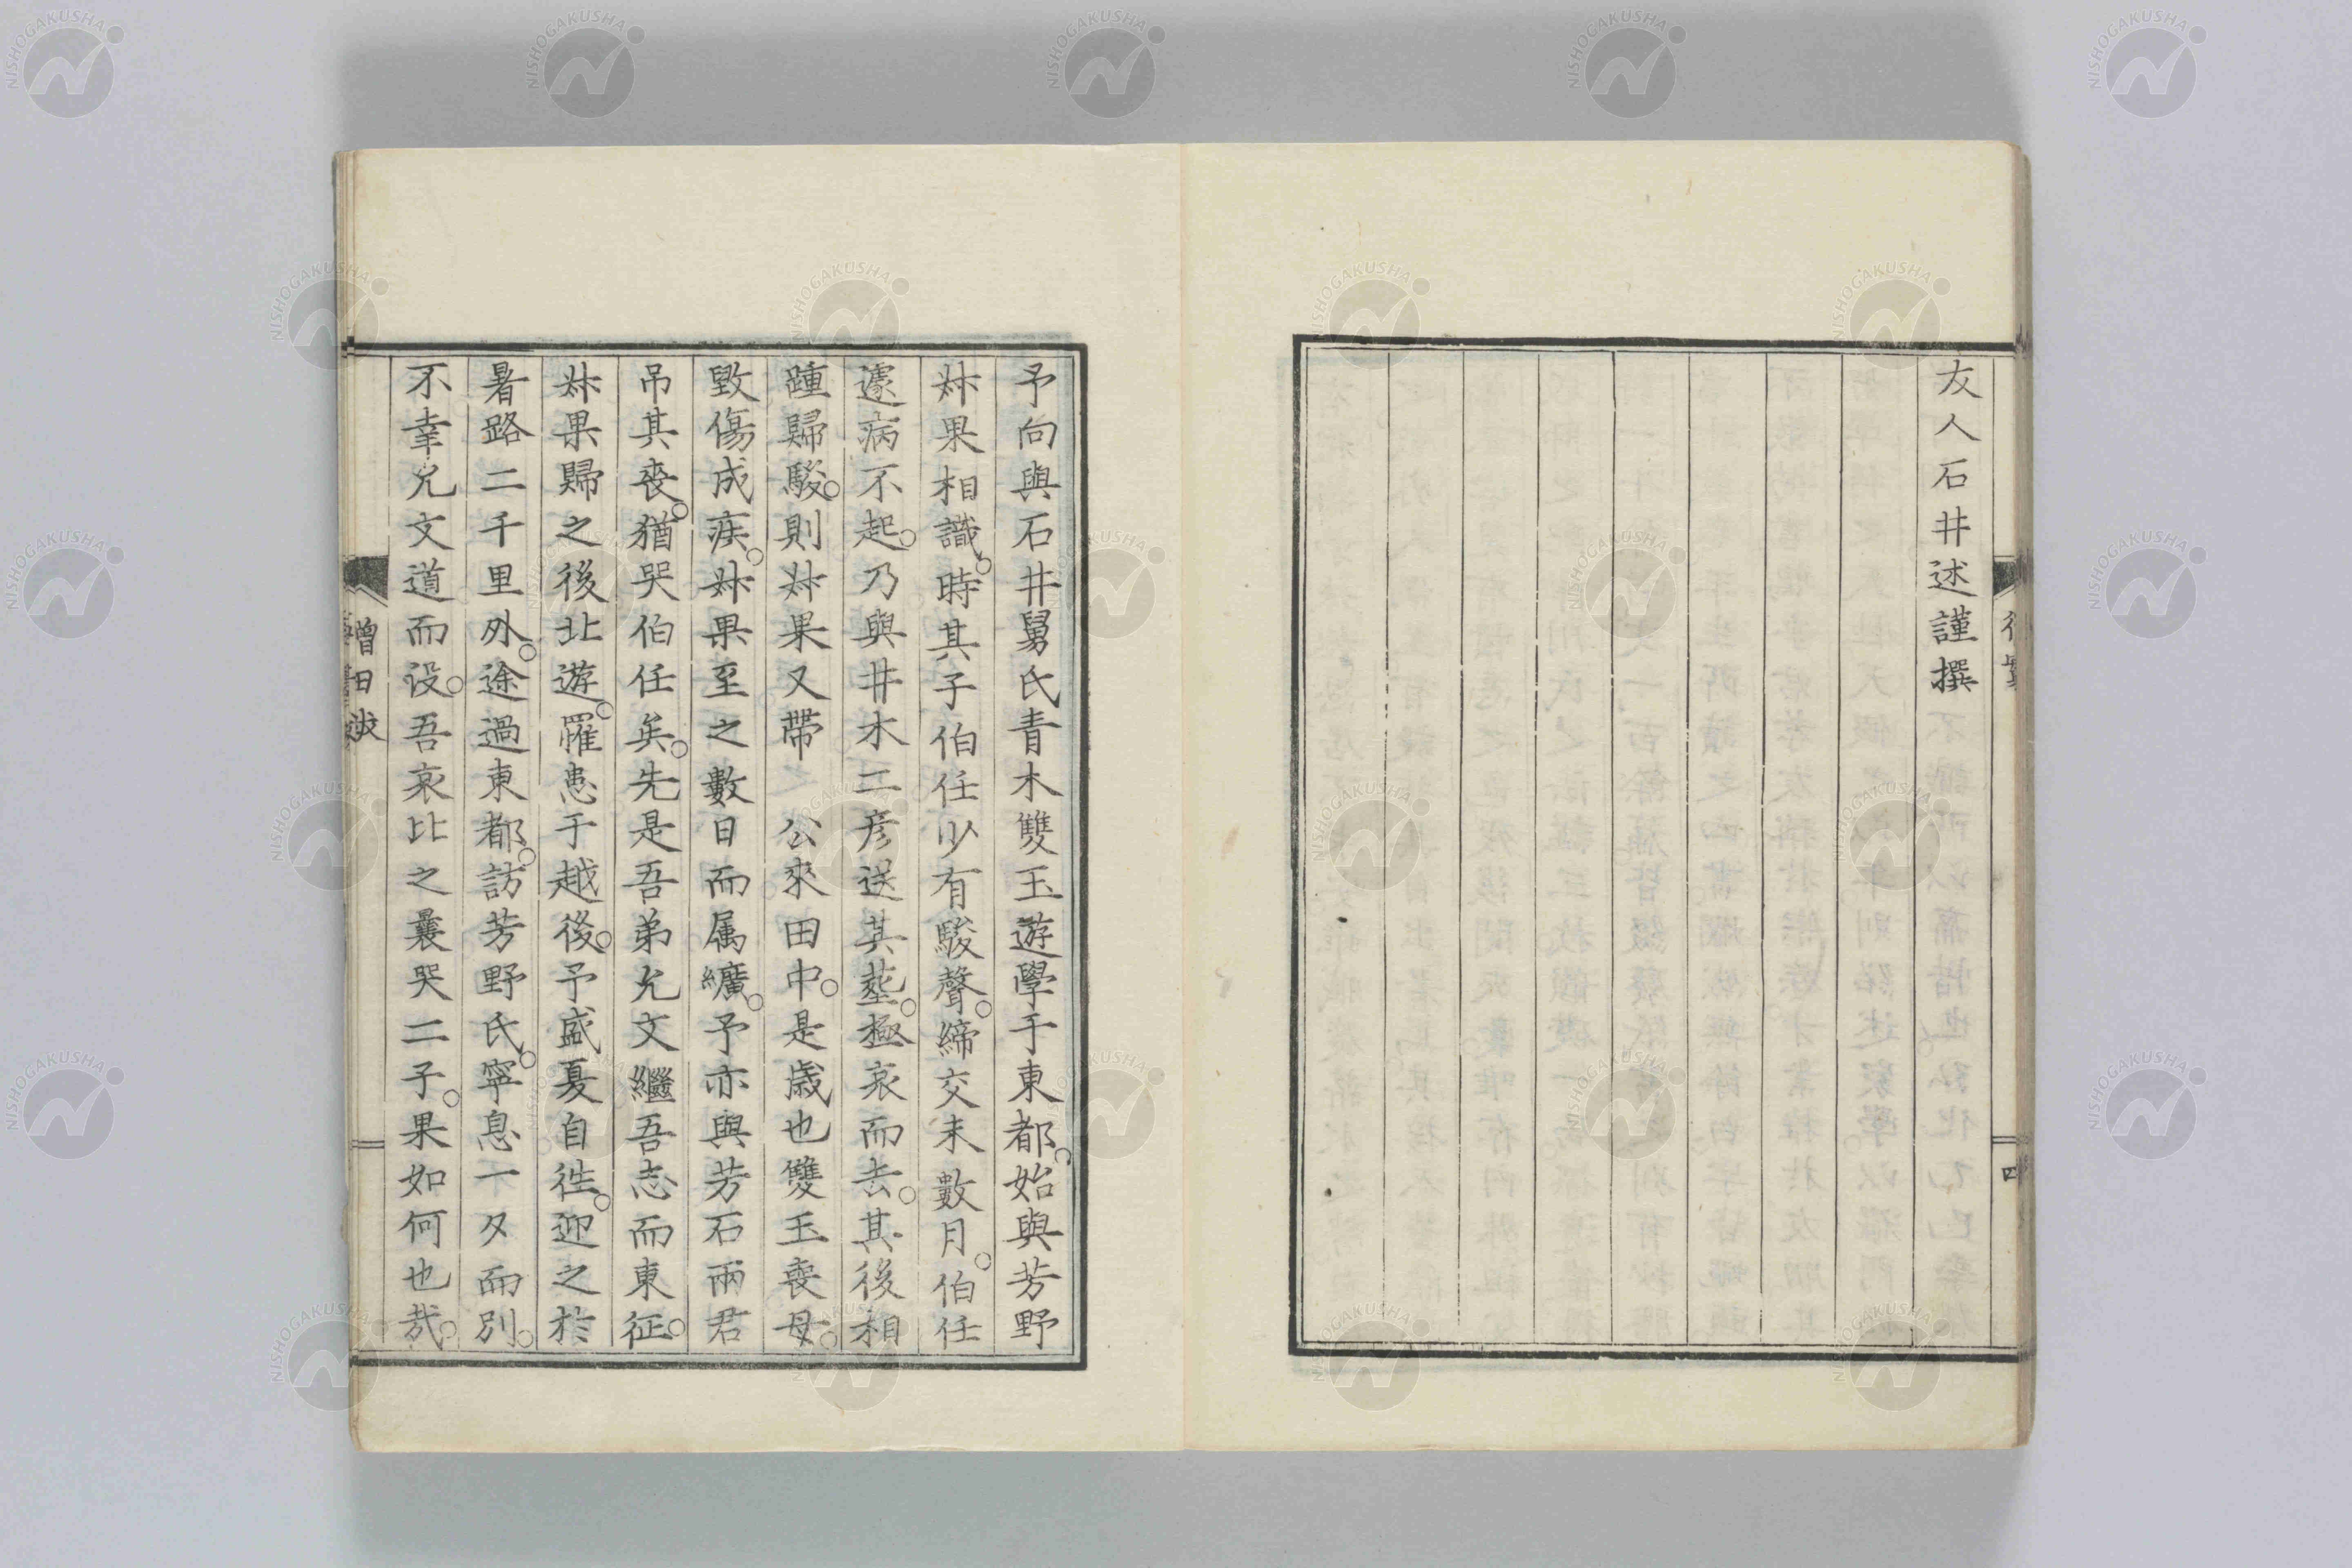 友人石井述謹撰
四
予向與石井舅氏青木雙玉遊學于東都。始與芳野
㚷果相識。時其子伯任少有駿聲。締交未數月。伯任
遽病不起。乃與井木二彦送其葬。極哀而去。其後相
踵歸駿。則㚷果又帶 公來田中。是歳也雙玉喪母。
毀傷成疾。㚷果至之數日而属纊。予亦與芳石兩君
吊其喪。猶哭伯任矣。先是吾弟允文繼吾志而東征。
㚷果歸之後北遊。罹患于越後。予盛夏自徃。迎之於
暑路二千里外。途過東都。訪芳野氏。寧息一夕而別。
不幸允文道而没。吾哀比之曩哭二子。果如何也哉。